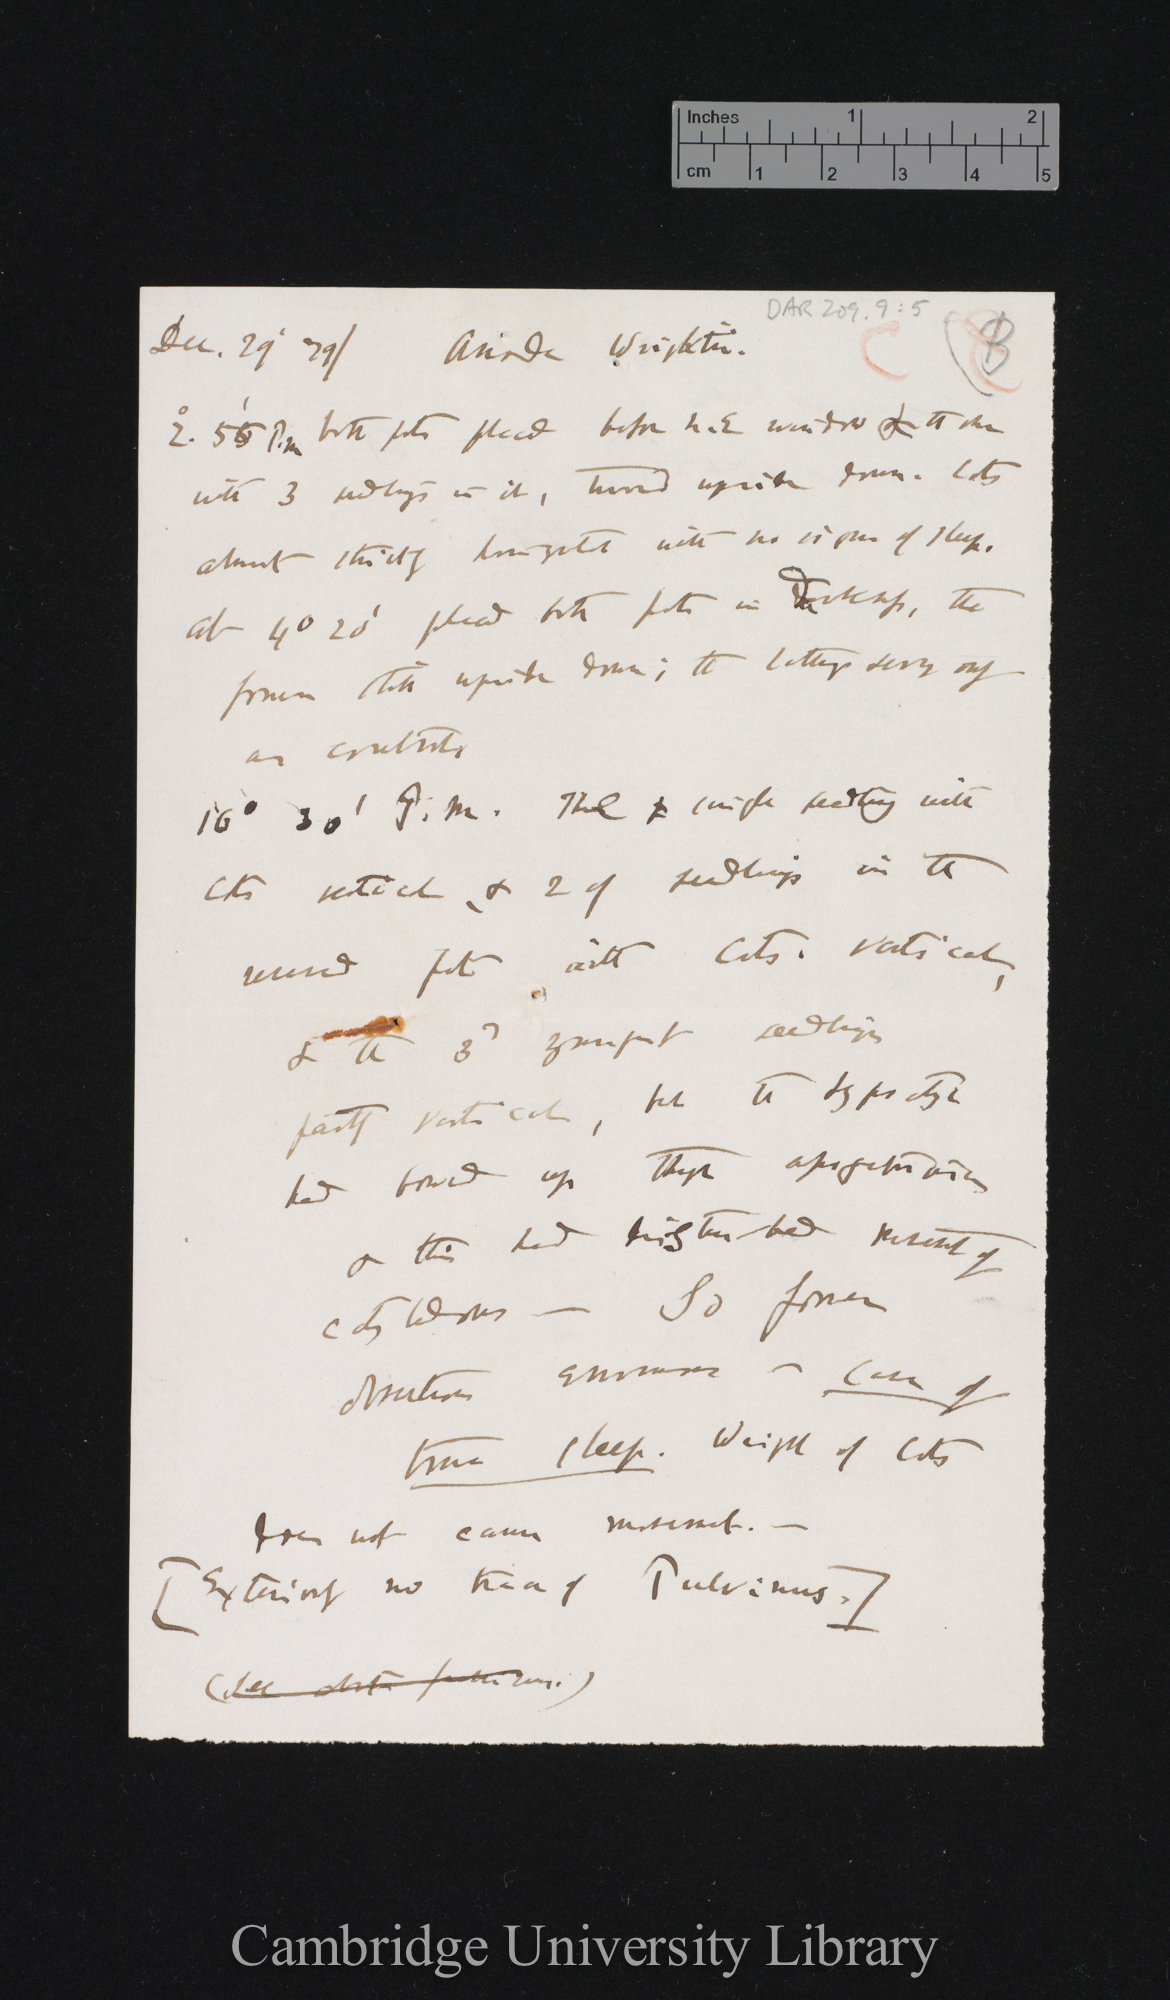 Inches 1 2
cm 1 2 3 4 5
DAR 209.9:5
B
Dec. 29' 79/ Anoda Wrightii.
2°. 55' P.m both pots placed before N.E window & the one
with 3 seedlings in it, turned upside down. Cots
almost strictly horizontal with no signs of sleep.
at 4° 20' placed both pots in Darkness, the
former still upside down; the latter serving only
as controls
10° 30' P.m. The single seedling with
Cots vertical & 2 of seedlings in the
reversed pots with Cots. vertical,
& the 3d youngest seedling
partly vertical, but the hypocotyls
had bowed up through apogeotropism
& this had disturbed movement of
cotyledons — So former
observations erroneous — Case of
true sleep. Weight of Cots
does not cause movement. —
[Exteriorly no trace of Pulvinus.]
(See
Cambridge University Library